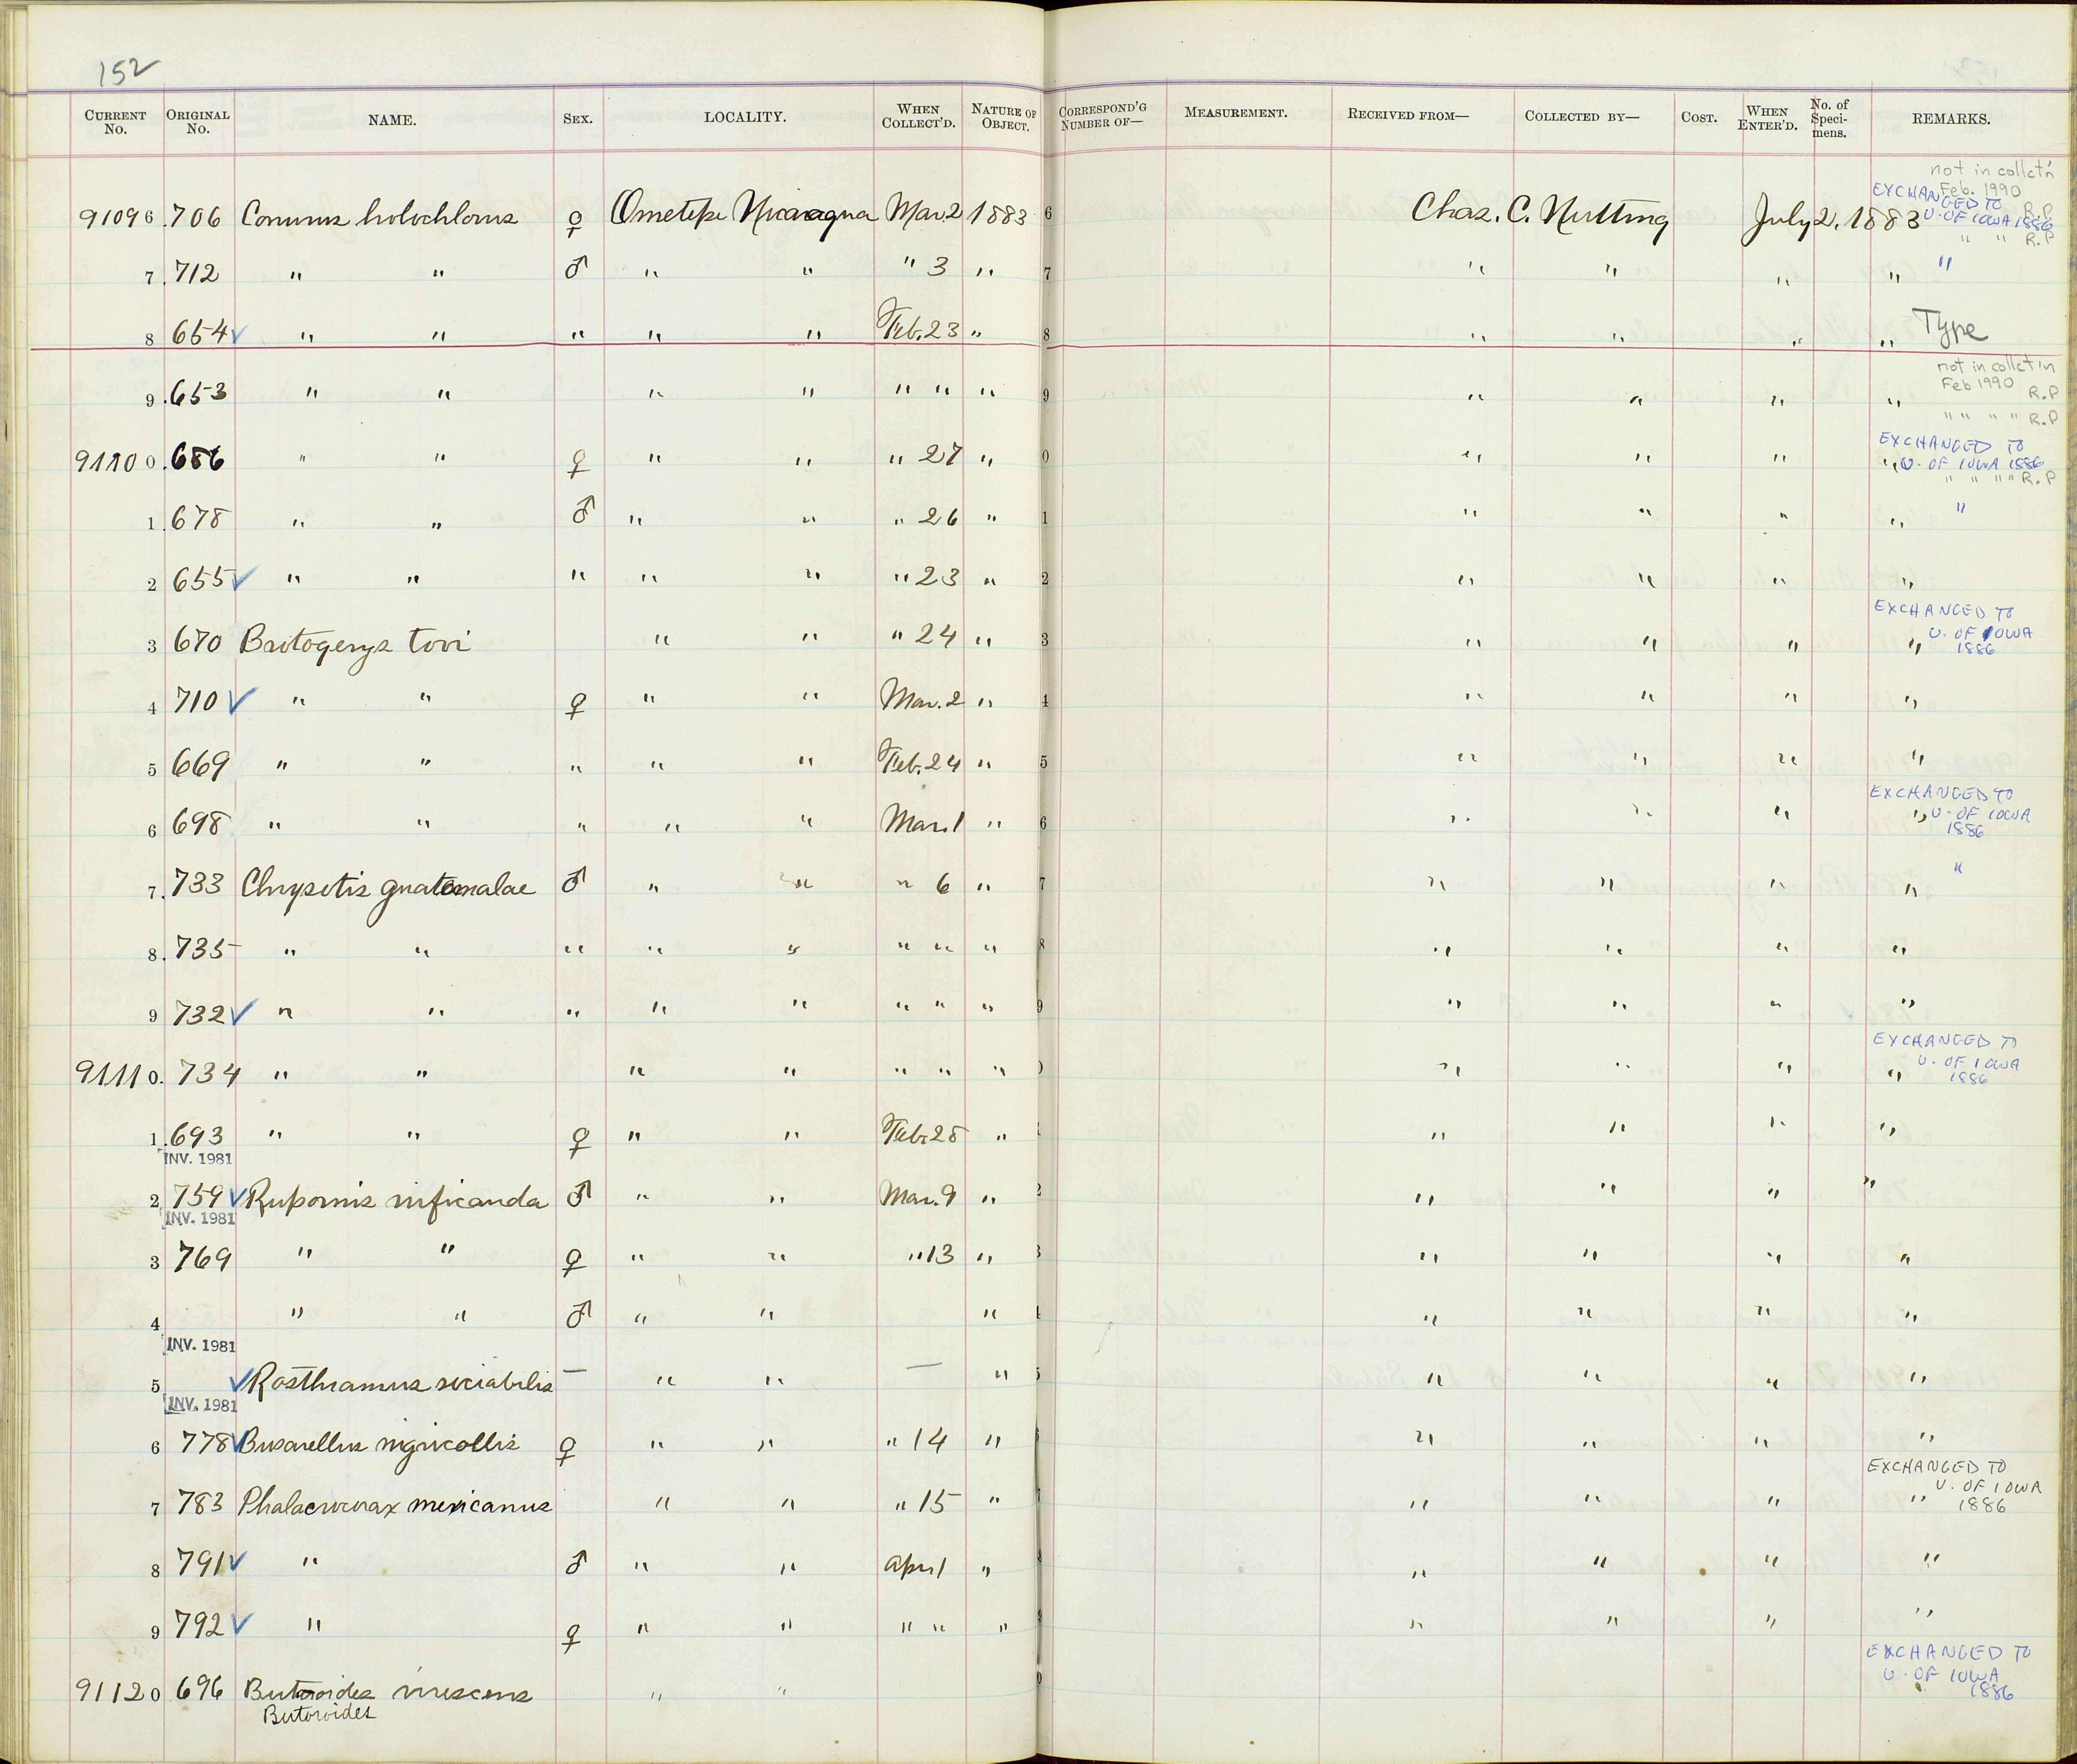 152
CURRENT No. ORIGINAL No. NAME. SEX. LOCALITY. WHEN COLLECT'D. NATURE OF OBJECT. CORRESPOND'G NUMBER OF— MEASUREMENT. RECEIVED FROM— COLLECTED BY— COST. WHEN ENTER'D. No. of Speci-mens. REMARKS.
not in collct'n
Feb. 1990 R.P
91096 .706 Conurus holochlorus ♀ Ometepe Nicaragua Mar. 2 1883 6 Chas. C. Nutting July 2, 1883 EXCHANGED TO U. OF IOWA 1886
" " R.P
7 .712 " " ♂ " " " 3 " 7 " " " " "
8 654 ✓ " " " " " Feb. 23 " 8 " " " " Type
not in collct'n
Feb 1990 R.P
9 .653 " " " " " " " 9 " " " "
" " " " R.P
91100 .686 " " ♀ " " " 27 " 0 " " " " EXCHANGED TO U. OF IOWA 1886
" " " " R.P
1 .678 " " ♂ " " " 26 " 1 " " " " "
2 655 ✓ " " " " " " 23 " 2 " " " "
3 670 Brotogerys tovi " " " 24 " 3 " " " " EXCHANGED TO U. OF IOWA 1886
4 710 ✓ " " ♀ " " Mar. 2 " 4 " " " "
5 669 " " " " " Feb. 24 " 5 " " " "
6 698 " " " " " Mar. 1 " 6 " " " " EXCHANGED TO U. OF IOWA 1886
7 .733 Chrysotis guatemalae ♂ " " " 6 " 7 " " " " "
8 .735 " " " " " " " " 8 " " " "
9 732 ✓ " " " " " " " " 9 " " " "
91110. 734 " " " " " " " 0 " " " " EXCHANGED TO U. OF IOWA 1886
1 .693 " " ♀ " " Feb. 28 " " " " "
INV. 1981
2 759 ✓ Rupornis ruficauda ♂ " " Mar. 9 " 2 " " " "
INV. 1981
3 769 " " ♀ " " " 13 " 3 " " " "
4 " " ♂ " " " " " " "
INV. 1981
5 ✓ Rosthramus sociabilis — " " — " 5 " " " "
INV. 1981
6 778 ✓ Busarellus nigricollis ♀ " " " 14 " " " " "
7 783 Phalacrocorax mexicanus " " " 15 " 7 " " " " EXCHANGED TO U. OF IOWA 1886
8 791 ✓ " ♂ " " April " " " " "
9 792 ✓ " ♀ " " " " " 9 " " " "
91120 696 Butoroides virescens " " 0 EXCHANGED TO U. OF IOWA 1886
Butoroides